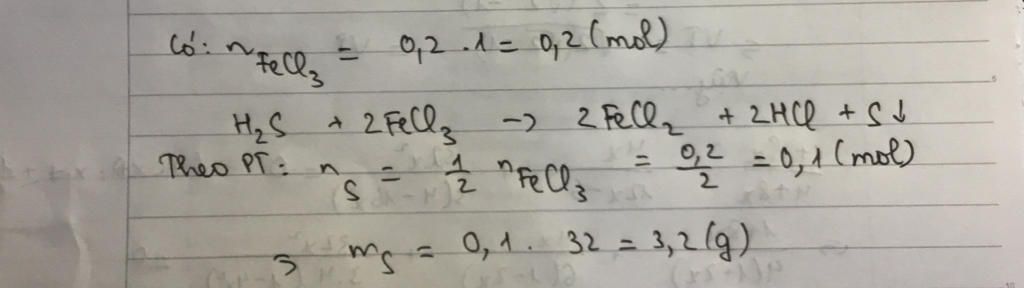 Có: n FeCl3 = 0,2 . 1 = 0,2 (mol)
H2S + 2FeCl3 -> 2FeCl2 + 2HCl + S↓
Theo PT: nS = 1/2 nFeCl3 = 0,2/2 = 0,1 (mol)
=> mS = 0,1 . 32 = 3,2 (g)